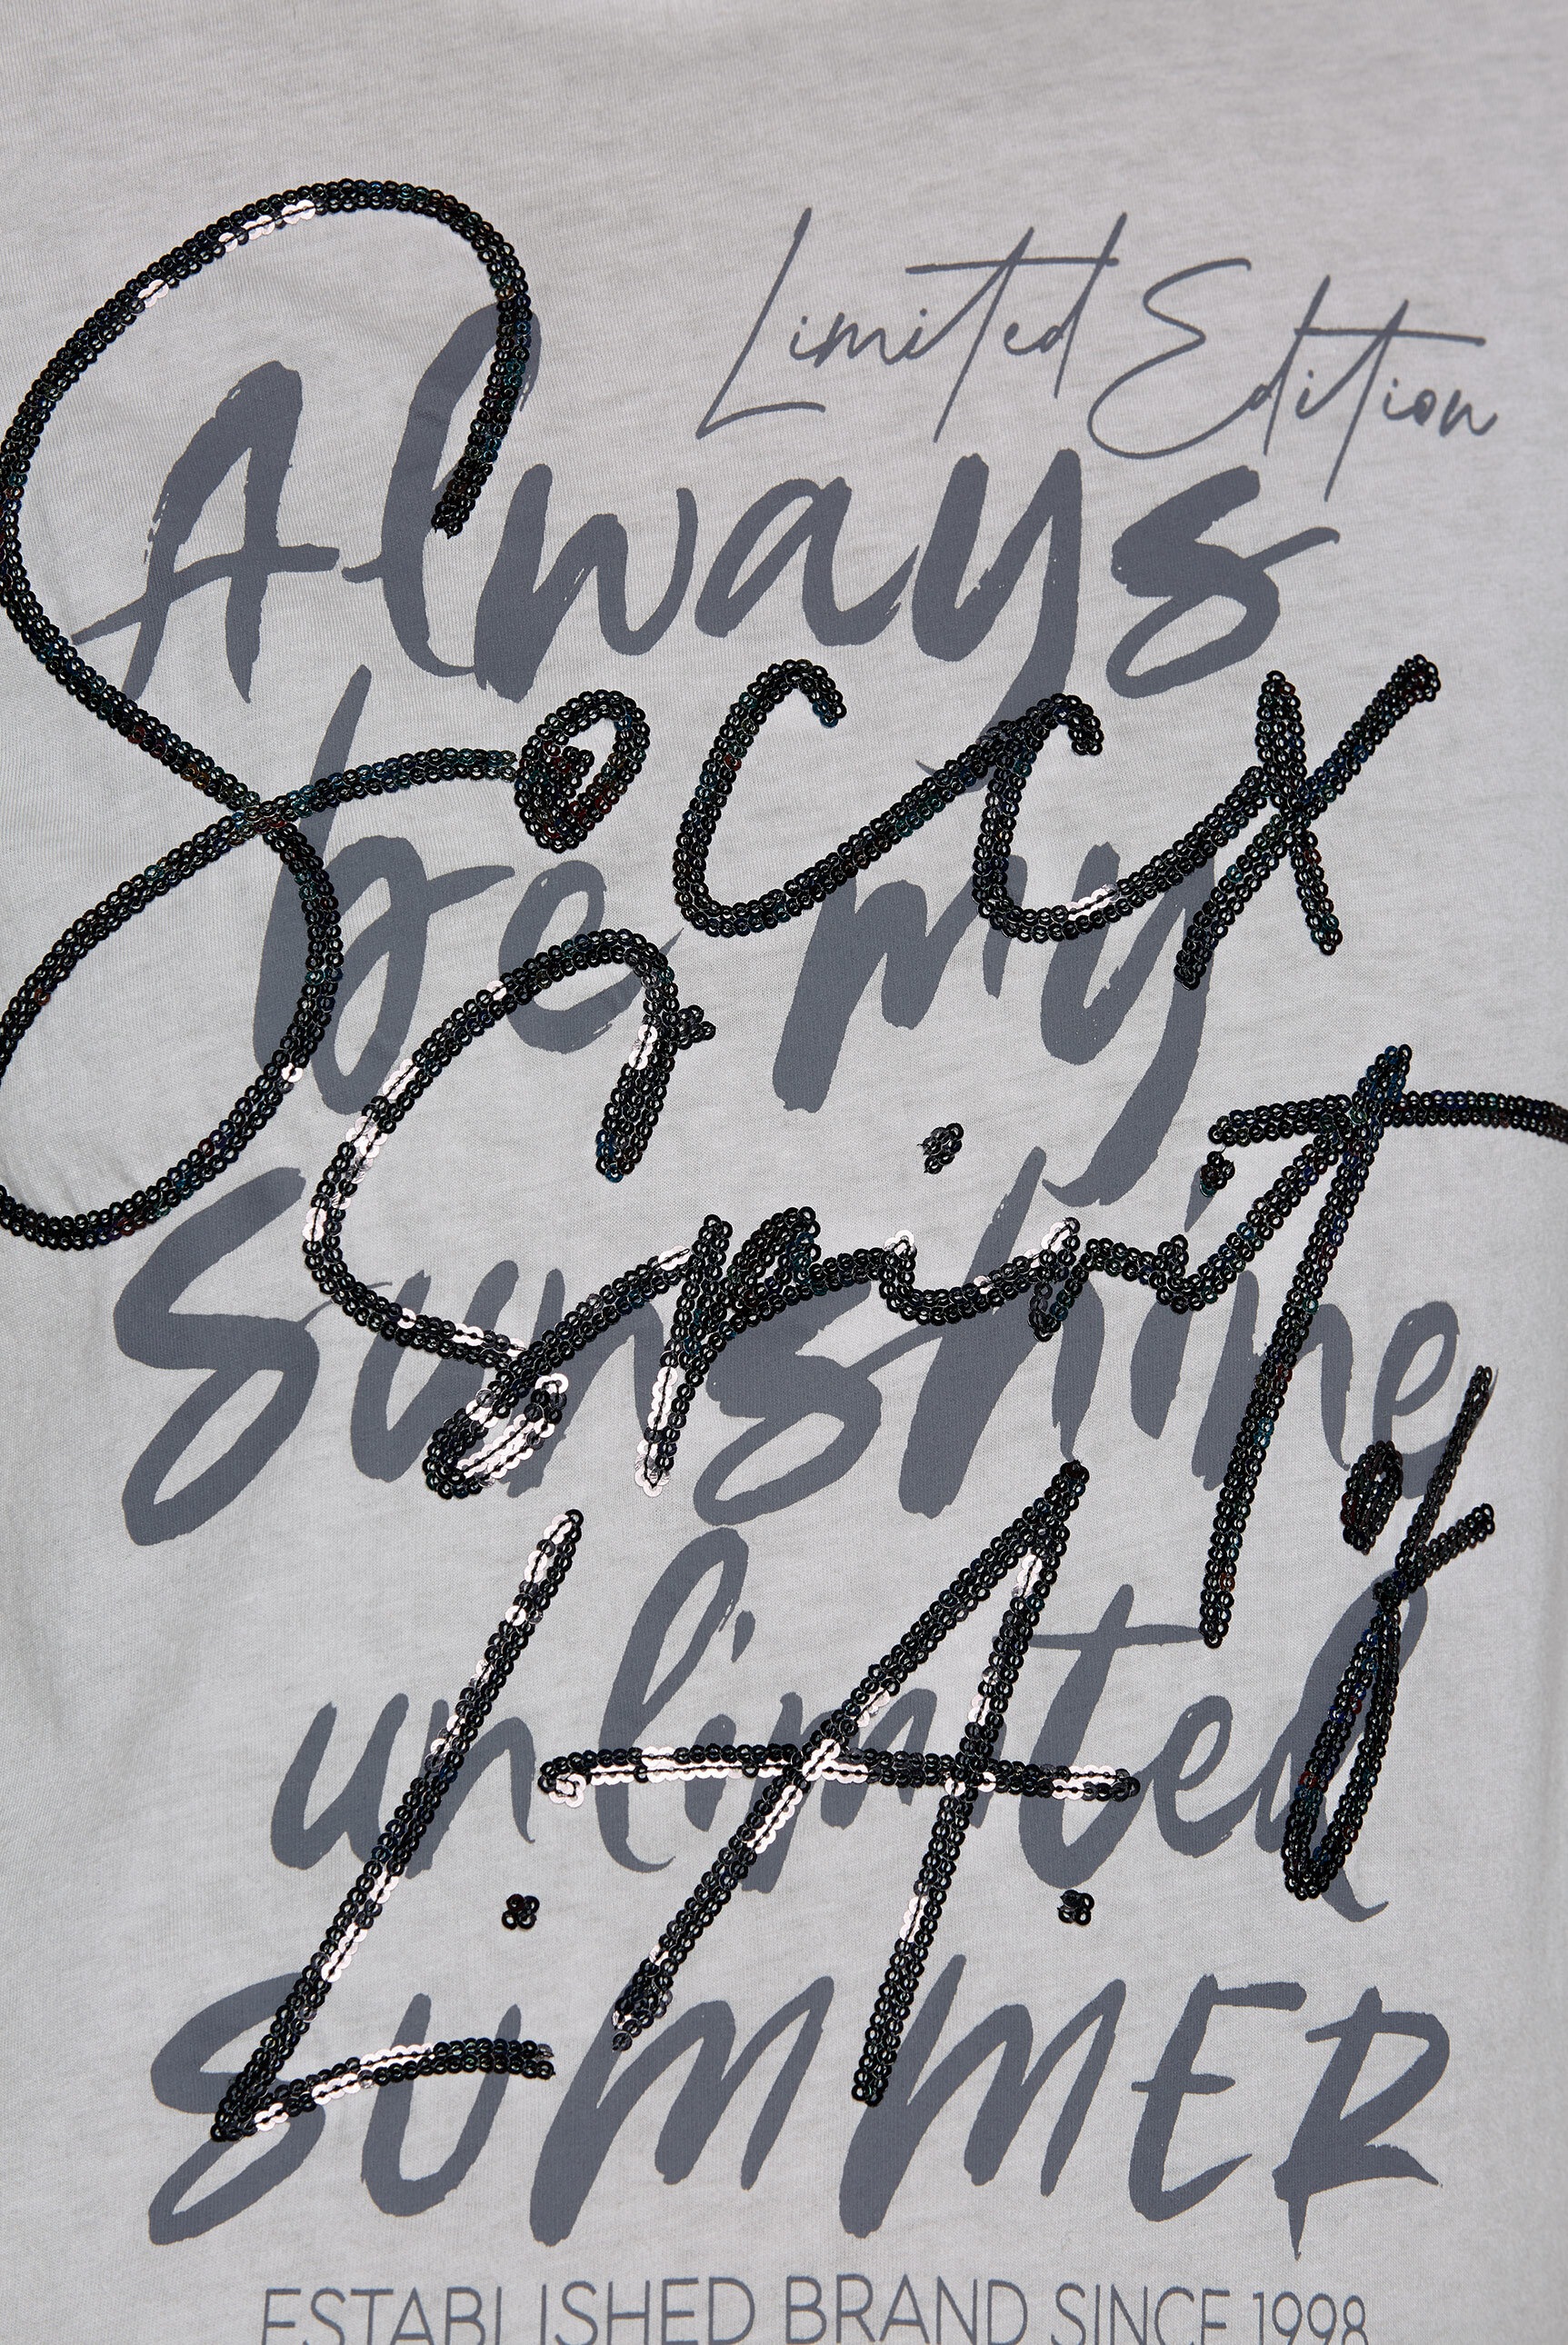 Limited Edition
Always
Soccx
be my
Spirit
Sunshine
of
unlimited
L.A.
SUMMER
ESTABLISHED BRAND SINCE 1998